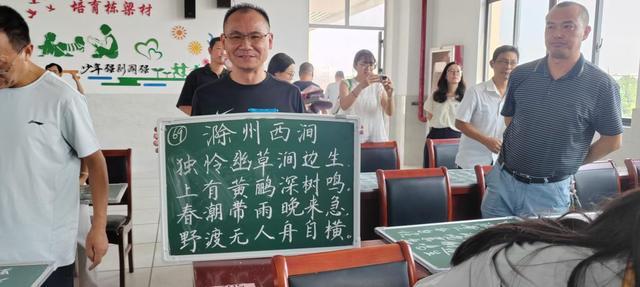 培育栋梁材
少年强则国强
69 滁州西涧
独怜幽草涧边生.
上有黄鹂深树鸣.
春潮带雨晚来急.
野渡无人舟自横.